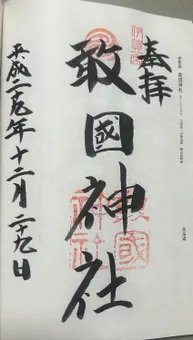 奉拝
伊賀國
敢國神社
敢國神社
平成二十九年十二月二十九日